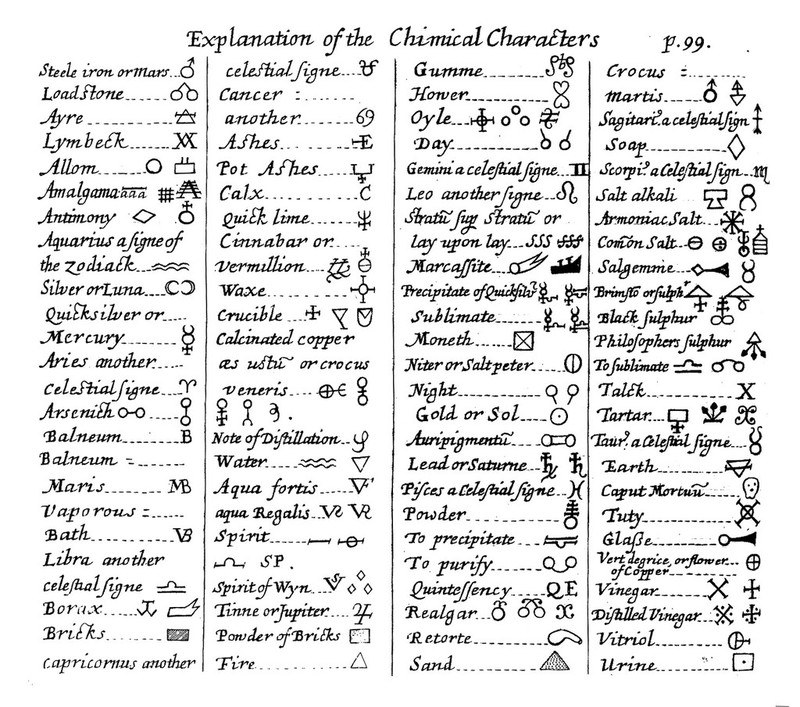 Explanation of the Chimical Characters p.99.
Steele iron or Mars
Loadstone
Ayre
Lymbeck
Allom
Amalgama aaa
Antimony
Aquarius a signe of
the zodiack
Silver or Luna
Quicksilver or
Mercury
Aries another
celestial signe
Arsenick
Balneum B
Balneum =
Maris MB
Vaporous =
Bath VB
Libra another
celestial signe
Borax
Bricks
Capricornus another
celestial signe
Cancer =
another 69
Ashes E
Pot Ashes
Calx C
Quick lime
Cinnabar or
vermillion
Waxe
Crucible
Calcinated copper
æs ustū or crocus
veneris
Note of Distillation
Water
Aqua fortis
aqua Regalis
Spirit
SP.
Spirit of Wyn
Tinne or Jupiter
Powder of Bricks
Fire
Gumme
Hower
Oyle
Day
Gemini a celestial signe
Leo another signe
Stratū sup stratū or
lay upon lay SSS
Marcassite
Precipitate of Quicksilv
Sublimate
Moneth
Niter or Saltpeter
Night
Gold or Sol
Auripigmentū
Lead or Saturne
Pisces a Celestial signe
Powder
To precipitate
To purify
Quintessency QE
Realgar
Retorte
Sand
Crocus =
martis
Sagitari? a celestial sign
Soap
Scorpi? a Celestial sign
Salt alkali
Armoniac Salt
Comōn Salt
Salgemme
Brimsto or sulph
Black sulphur
Philosophers sulphur
To sublimate
Talck X
Tartar
Taur? a Celestial signe
Earth
Caput Mortuū
Tuty
Glasse
Vert degrice, or flower
of Copper
Vinegar
Distilled Vinegar
Vitriol
Urine